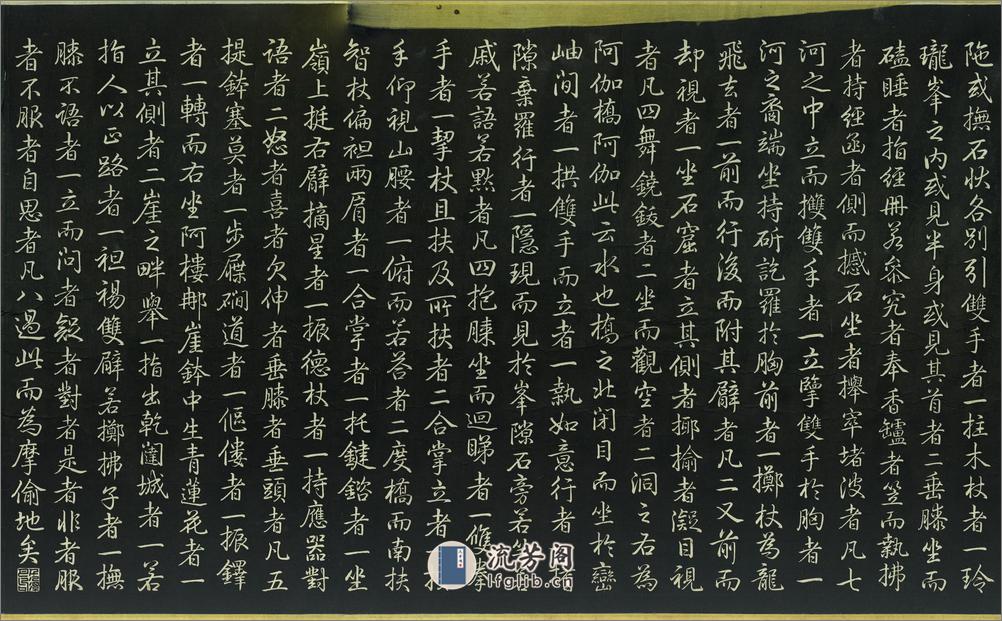 陁或撫石状各別引雙手者一拄木杖者一玲
瓏峯之内或見半身或見其首者二垂膝坐而
磕睡者指經冊若叅究者奉香罏者笠而執拂
者持經函者側而撼石坐者攑窣堵波者凡七
河之中立而攖雙手者一立擘雙手於胸者一
河之裔端坐持斫訖羅於胸前者一擲杖為龍
飛去者一前而行後而附其臂者凡二又前而
却視者一坐石窟者立其側者揶揄者凝目視
者凡四舞鐃鈸者二坐而觀空者二洞之右為
阿伽橋阿伽此云水也橋之北闭目而坐於巒
岫间者一拱雙手而立者一執如意行者一
隙棄羅行者一隱現而見於峯隙石旁若
戚若語若黙者凡四抱膝坐而迴睇者一
手者一挈杖且扶及所扶者二合掌立者
手仰視山腰者一俯而若荅者二度橋而南扶
智杖偏袒兩肩者一合掌者一托鍵鎔者一坐
嶺上挺右臂摘星者一振德杖者一持應器對
語者二怒者喜者欠伸者垂膝者垂頭者凡五
提鉢塞莫者一步屧磵道者一傴僂者一振鐸
者一轉而右坐阿樓那崖鉢中生青蓮花者一
立其側者二崖之畔舉一指出乾闥城者一若
指人以正路者一袒裼雙臂若擲拂子者一撫
膝不語者一立而问者疑者對者是者非者服
者不服者自思者凡八過此而為摩偷地矣
流芳阁
lfglib.cn